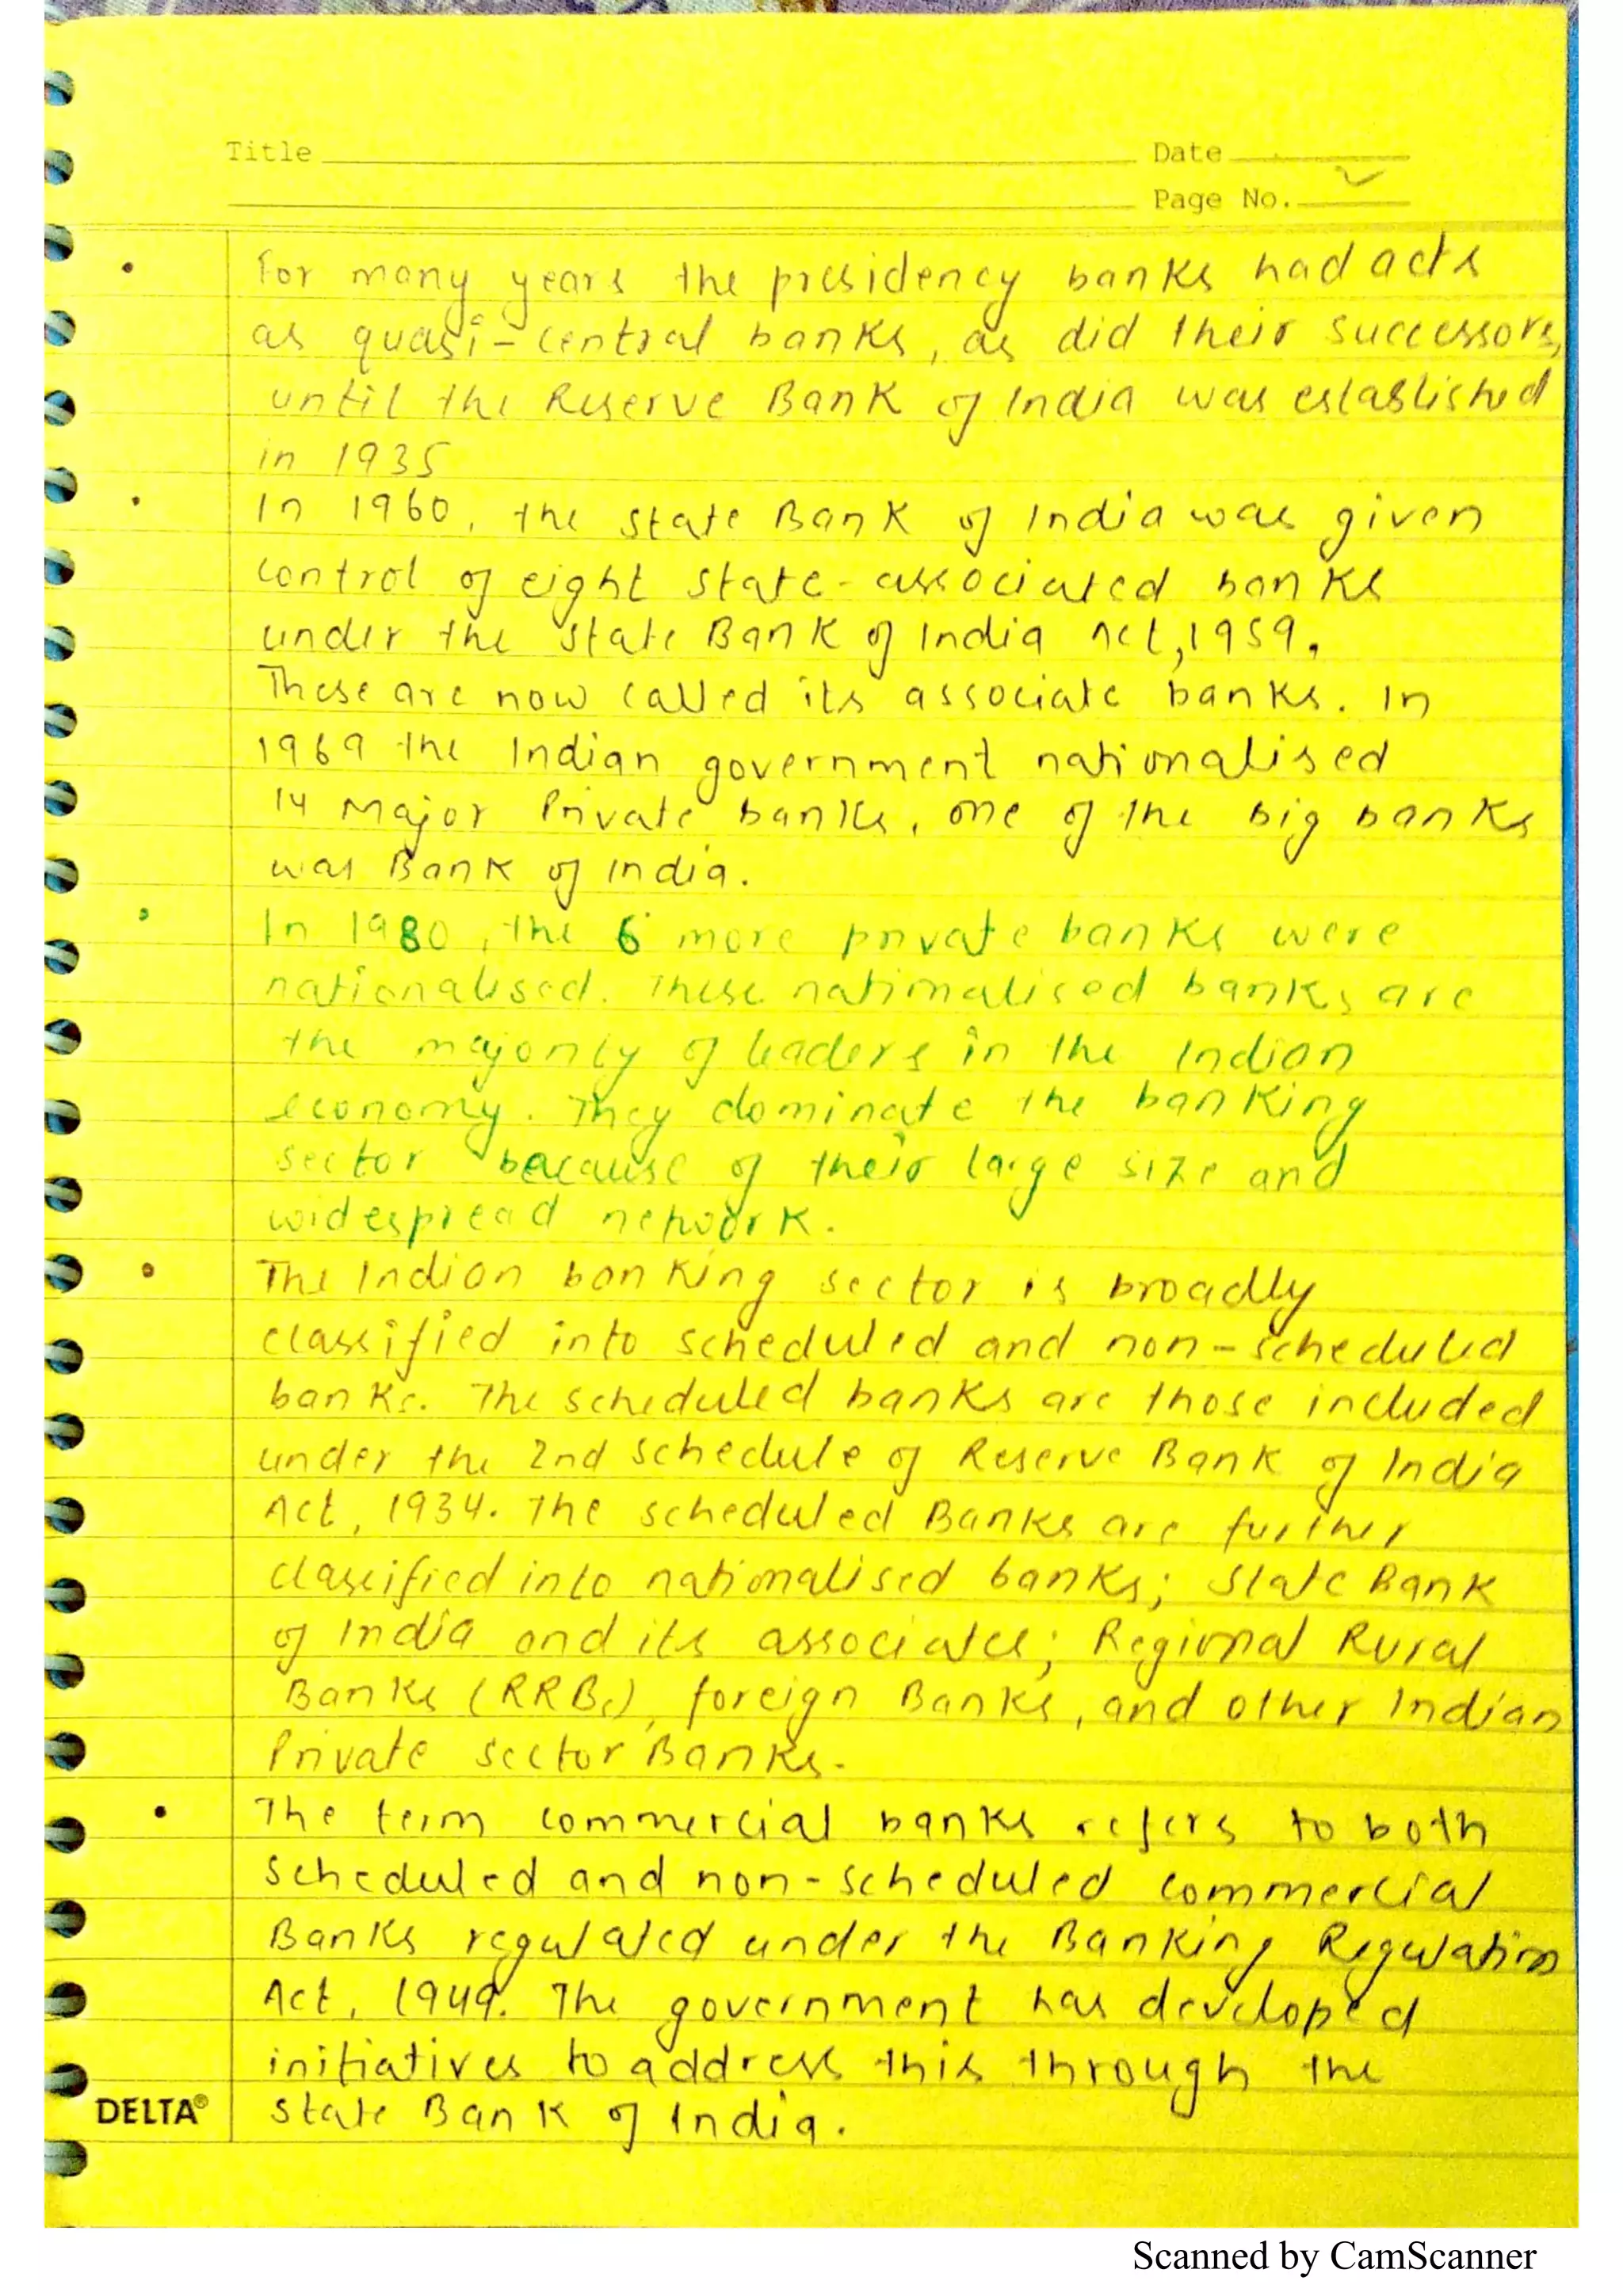 Title Date
Page No.
• For many years the presidency banks had acts
as quasi-central banks, as did their successors,
until the Reserve Bank of India was established
in 1935
• In 1960, the state Bank of India was given
control of eight state-associated banks
under the state Bank of India Act, 1959.
These are now called its associate banks. In
1969 the Indian government nationalised
14 Major Private banks, one of the big banks
was Bank of India.
• In 1980, the 6 more private banks were
nationalised. These nationalised banks are
the majority of leaders in the Indian
economy. They dominate the banking
sector because of their large size and
widespread network.
• The Indian banking sector is broadly
classified into scheduled and non-scheduled
banks. The scheduled banks are those included
under the 2nd schedule of Reserve Bank of India
Act, 1934. The scheduled Banks are further
classified into nationalised banks; State Bank
of India and its associates; Regional Rural
Banks (RRBs), foreign Banks, and other Indian
Private sector Banks.
• The term commercial banks refers to both
scheduled and non-scheduled commercial
Banks regulated under the Banking Regulation
Act, 1949. The government has developed
initiatives to address this through the
DELTA® state Bank of India.
Scanned by CamScanner